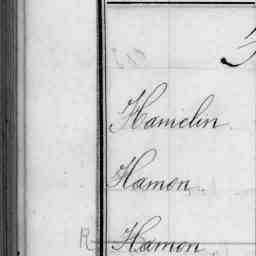 Hamelin
Hamon
R Hamon